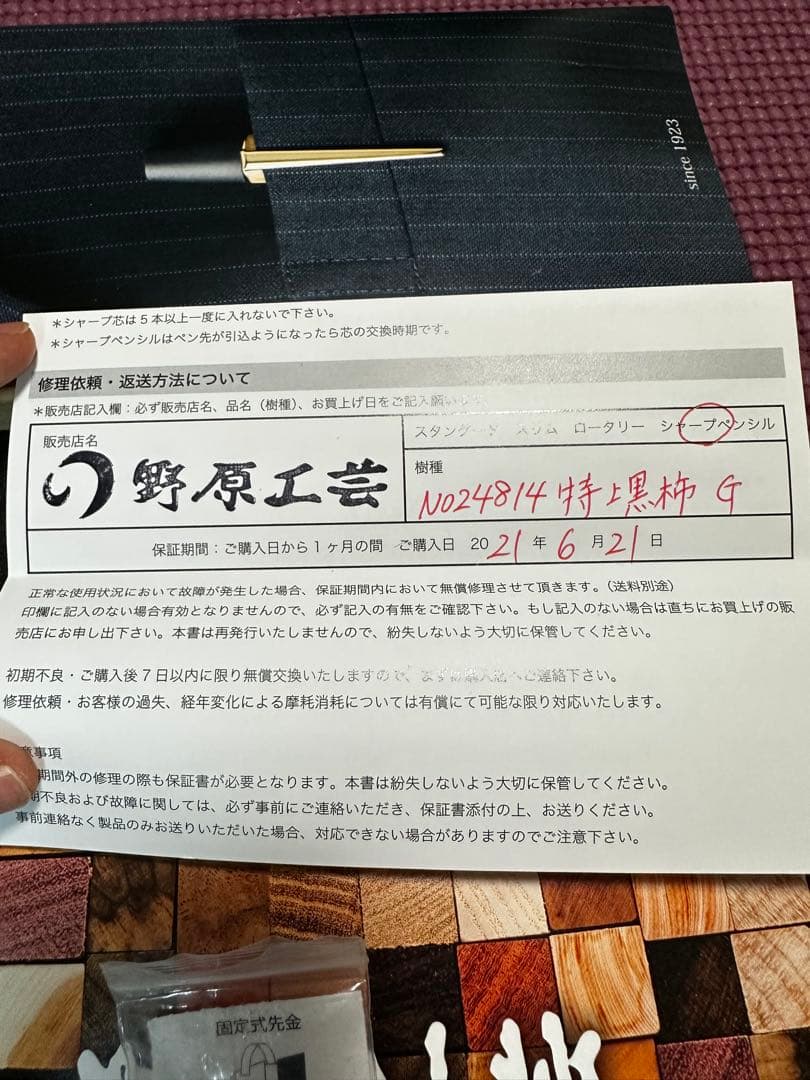 since 1923
＊シャープ芯は5本以上一度に入れないで下さい。
＊シャープペンシルはペン先が引込ようになったら芯の交換時期です。
修理依頼・返送方法について
＊販売店記入欄：必ず販売店名、品名（樹種）、お買上げ日をご記入願います
販売店名
野原工芸
スタンダード スリム ロータリー シャープペンシル
樹種
No24814 特上黒柿 G
保証期間：ご購入日から1ヶ月の間 ご購入日 2021年6月21日
正常な使用状況において故障が発生した場合、保証期間内において無償修理させて頂きます。（送料別途）
印欄に記入のない場合有効となりませんので、必ず記入の有無をご確認下さい。もし記入のない場合は直ちにお買上げの販
売店にお申し出下さい。本書は再発行いたしませんので、紛失しないよう大切に保管してください。
初期不良・ご購入後7日以内に限り無償交換いたしますので、まずは購入店へご連絡下さい。
修理依頼・お客様の過失、経年変化による摩耗消耗については有償にて可能な限り対応いたします。
意事項
期間外の修理の際も保証書が必要となります。本書は紛失しないよう大切に保管してください。
期不良および故障に関しては、必ず事前にご連絡いただき、保証書添付の上、お送りください。
事前連絡なく製品のみお送りいただいた場合、対応できない場合がありますのでご注意下さい。
固定式先金